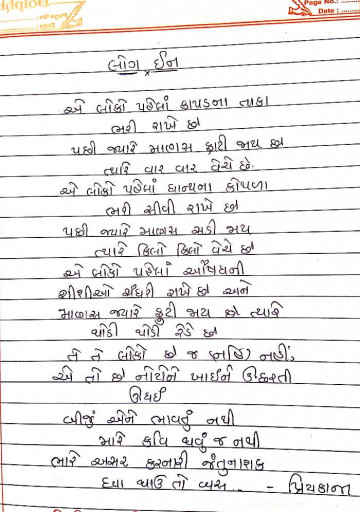 Page No.:
Date :
લોગ ઈન
એ લોકો પહેલાં કાપડના તાકા
ભરી રાખે છે
પછી જ્યારે માણસ ફાટી જાય છે
ત્યારે વાર વાર વેચે છે.
એ લોકો પહેલાં ધાન્યના કોથળા
ભરી સીવી રાખે છે
પછી જ્યારે માણસ સડી જાય
ત્યારે કિલો કિલો વેચે છે
એ લોકો પહેલાં ઔષધની
શીશીઓ સંઘરી રાખે છે અને
માણસ જ્યારે ફુટી જાય છે ત્યારે
થોડી થોડી રેડે છે
તે લોકો છે જ નહીં,
એ તો છે નોટોને ખાઈને ઊછરતી
ઊધઈ
બીજું એને ભાવતું નથી
મારે કવિ થવું જ નથી
ભારે અસર કરનારી જંતુનાશક
દવા થાઉં તો બસ..